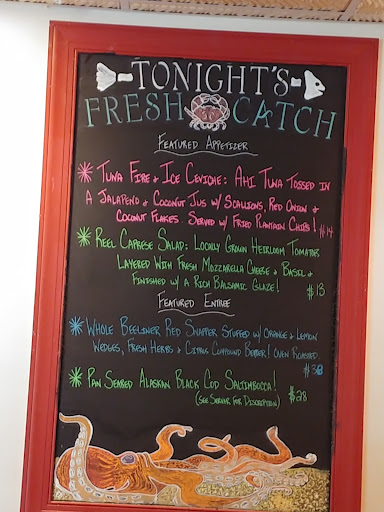 TONIGHT'S
FRESH CATCH
FEATURED APPETIZER
* TUNA FIRE & ICE CEVICHE: AHI TUNA TOSSED IN
A JALAPEÑO & COCONUT JUS W/ SCALLIONS, RED ONION &
COCONUT FLAKES SERVED W/ FRIED PLANTAIN CHIPS! $14
* REEL CAPRESE SALAD: LOCALLY GROWN HEIRLOOM TOMATOES
LAYERED WITH FRESH MOZZARELLA CHEESE & BASIL &
FINISHED W/ A RICH BALSAMIC GLAZE! $13
FEATURED ENTREE
* WHOLE BEELINER RED SNAPPER STUFFED W/ ORANGE & LEMON
WEDGES, FRESH HERBS & CITRUS COMPOUND BUTTER! OVEN ROASTED.
$38
* PAN SEARED ALASKAN BLACK COD SALTIMBOCCA!
(SEE SERVER FOR DISCRIPTION) $28